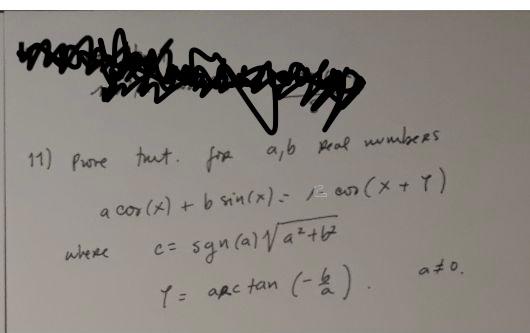 11) Prove that. for a,b real numbers
a cos(x) + b sin(x) = c cos(x + φ)
where c = sgn(a) √a²+b²
φ = arc tan (-b/a). a≠0.